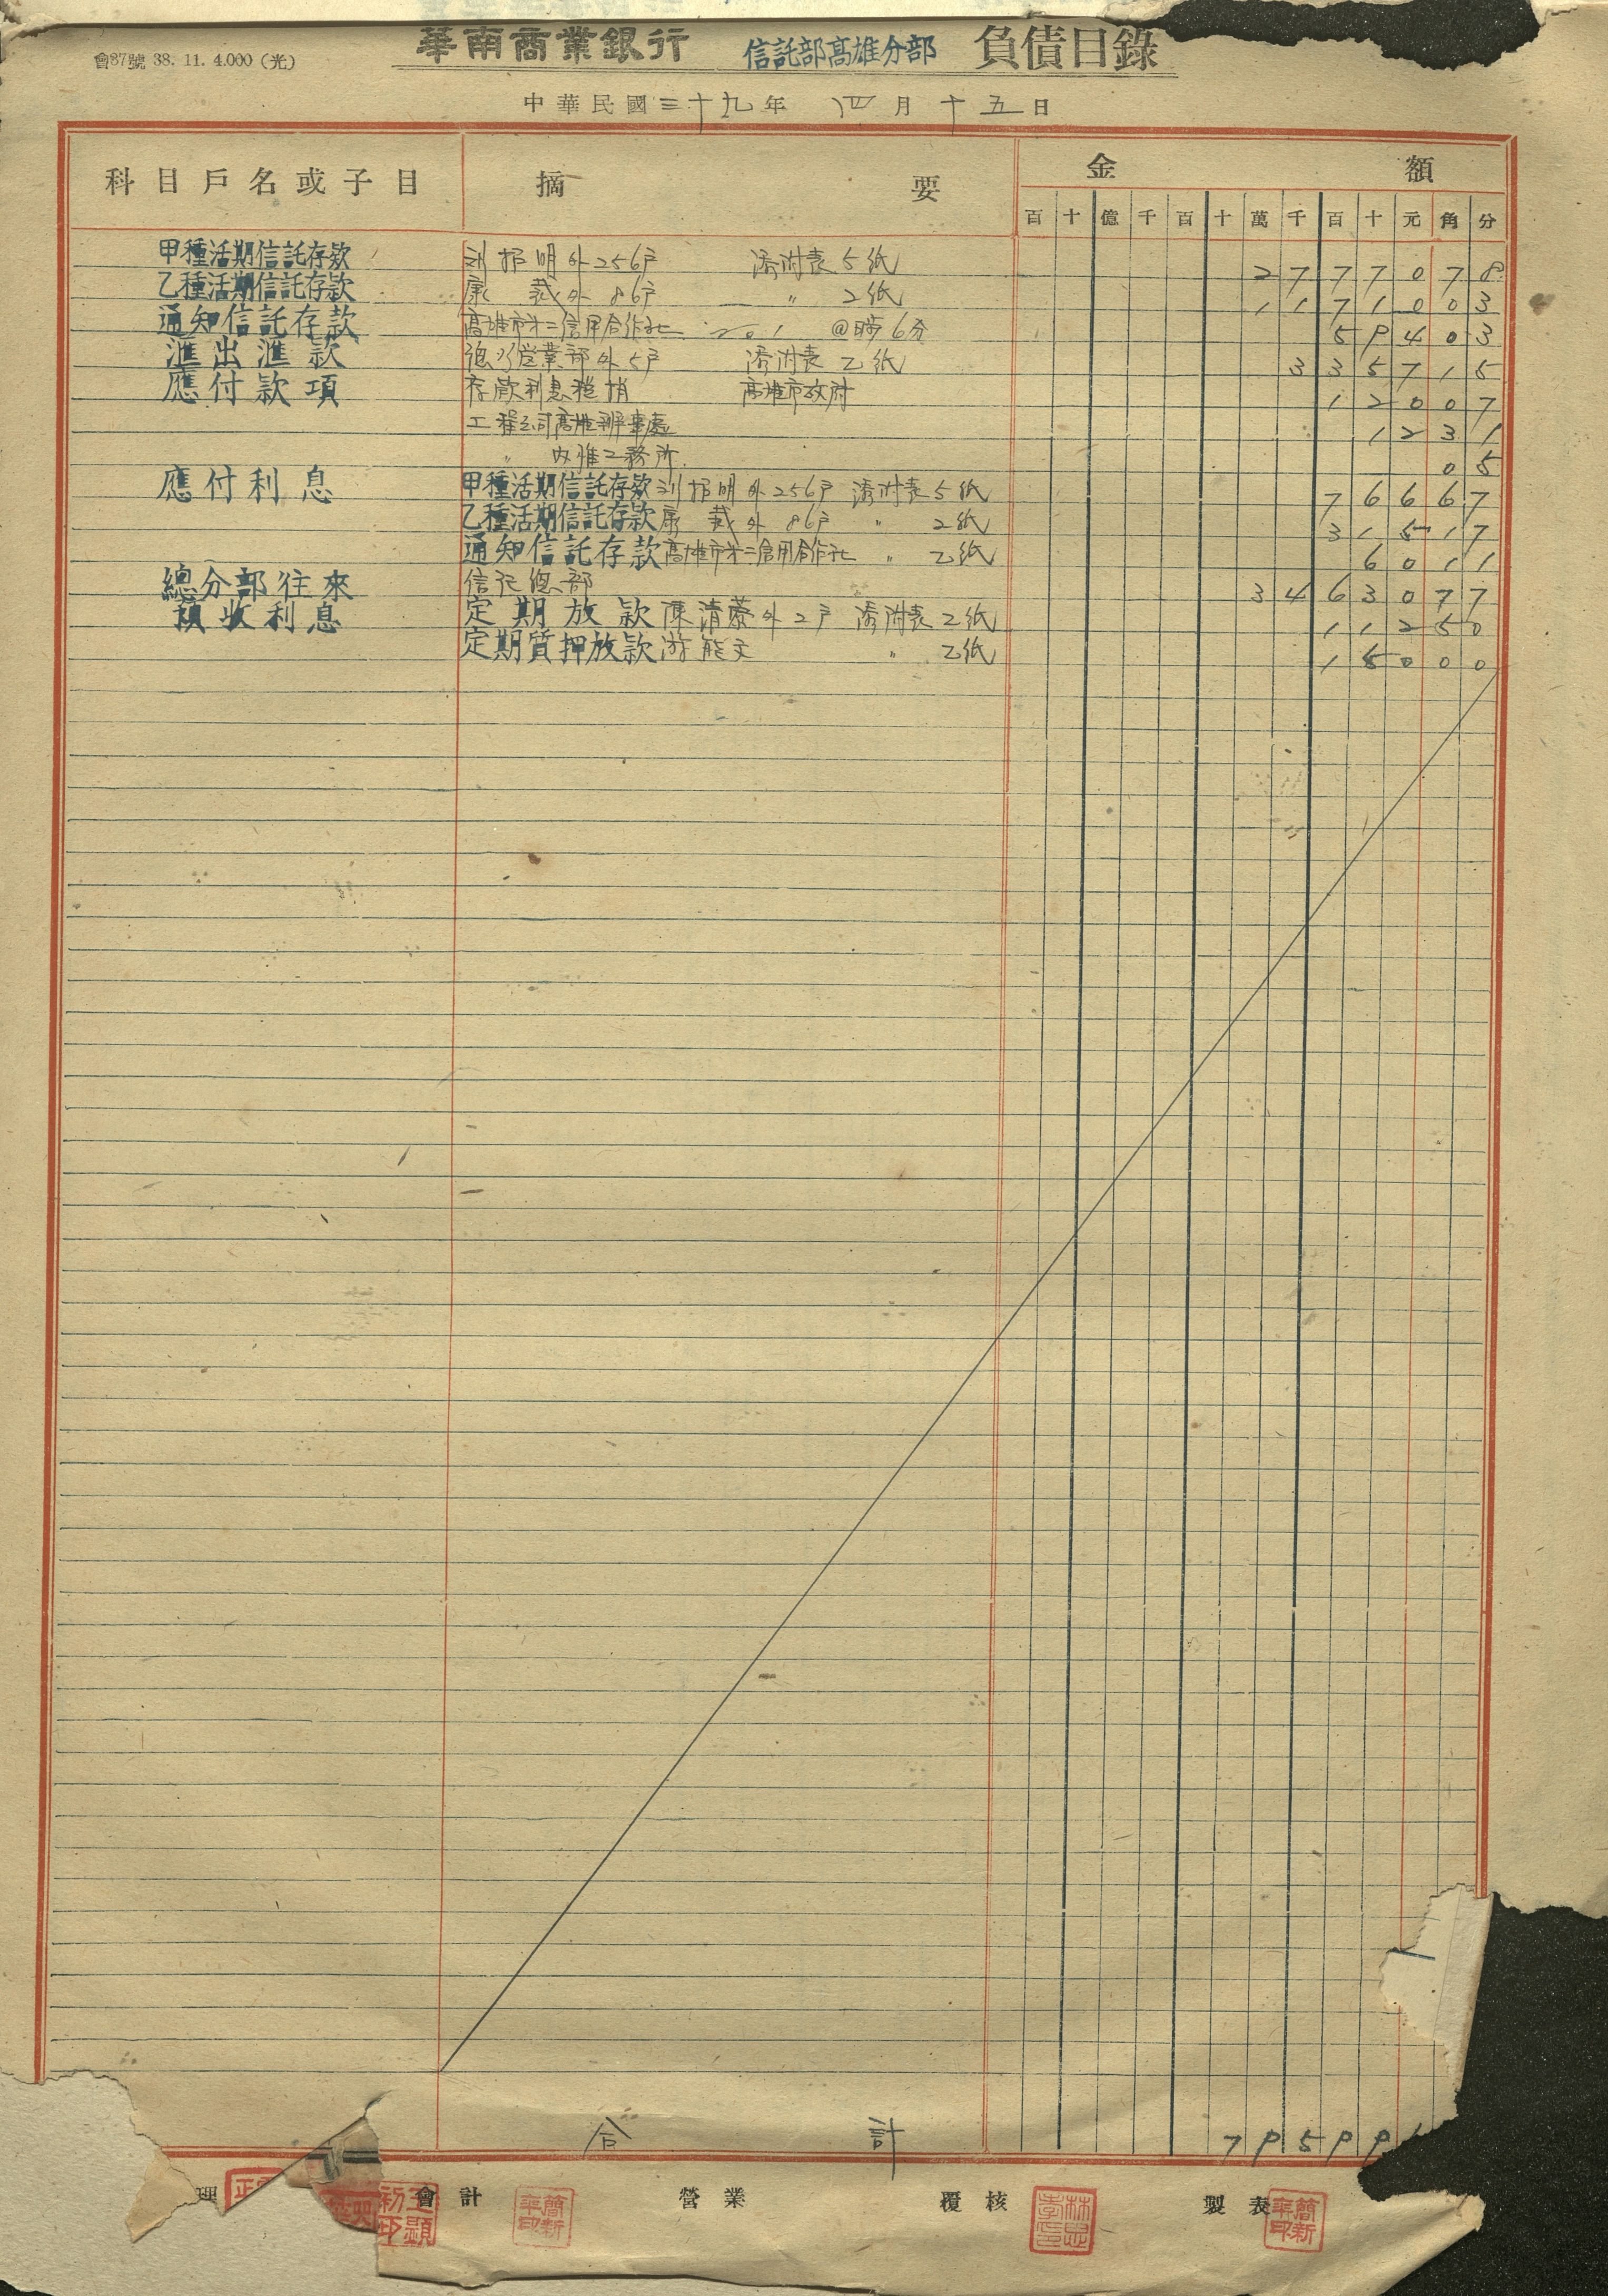 會87號 38. 11. 4.000 (光)
華南商業銀行 信託部高雄分部 負債目錄
中華民國三十九年 四月十五日
科目戶名或子目 摘要 金額
百 十 億 千 百 十 萬 千 百 十 元 角 分
甲種活期信託存款 外256戶 添附表5紙 2 7 7 7 0 7 8
乙種活期信託存款 康 外 86戶 〃 2紙 1 1 7 1 0 0 3
通知信託存款 高雄市第二信用合作社 201 @日步6分 5 9 4 0 3
滙出滙款 總行營業部外5戶 添附表乙紙 3 3 5 7 1 5
應付款項 存款利息 高雄市政府 1 2 0 0 7
工程公司高雄辦事處 1 2 3 1
〃 內惟工務所 0 5
應付利息 甲種活期信託存款 外256戶 添附表5紙 7 6 6 6 7
乙種活期信託存款 康 外 86戶 〃 2紙 3 1 5 1 7
通知信託存款 高雄市第二信用合作社 〃 乙紙 6 0 1 1
總分部往來 信託總部 3 4 6 3 0 7 7
預收利息 定期放款 陳清 外2戶 添附表乙紙 1 1 2 5 0
定期質押放款 游能文 〃 乙紙 1 5 0 0 0
合計 7 9 5 9 9
理 會計 營業 覆核 製表
簡新平印 簡新平印